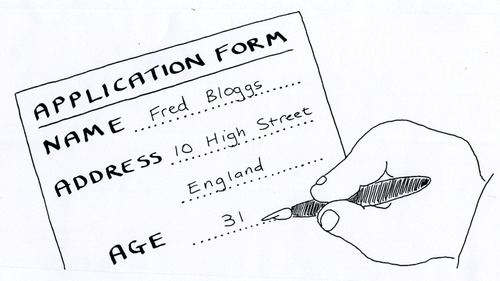 APPLICATION FORM
NAME Fred Bloggs
ADDRESS 10 High Street
England
AGE 31